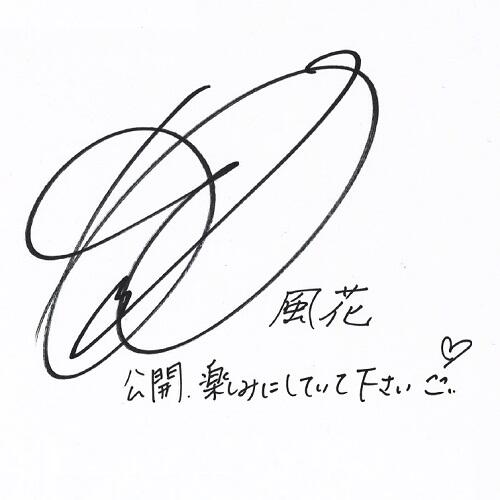 風花
公開.楽しみにしていて下さい